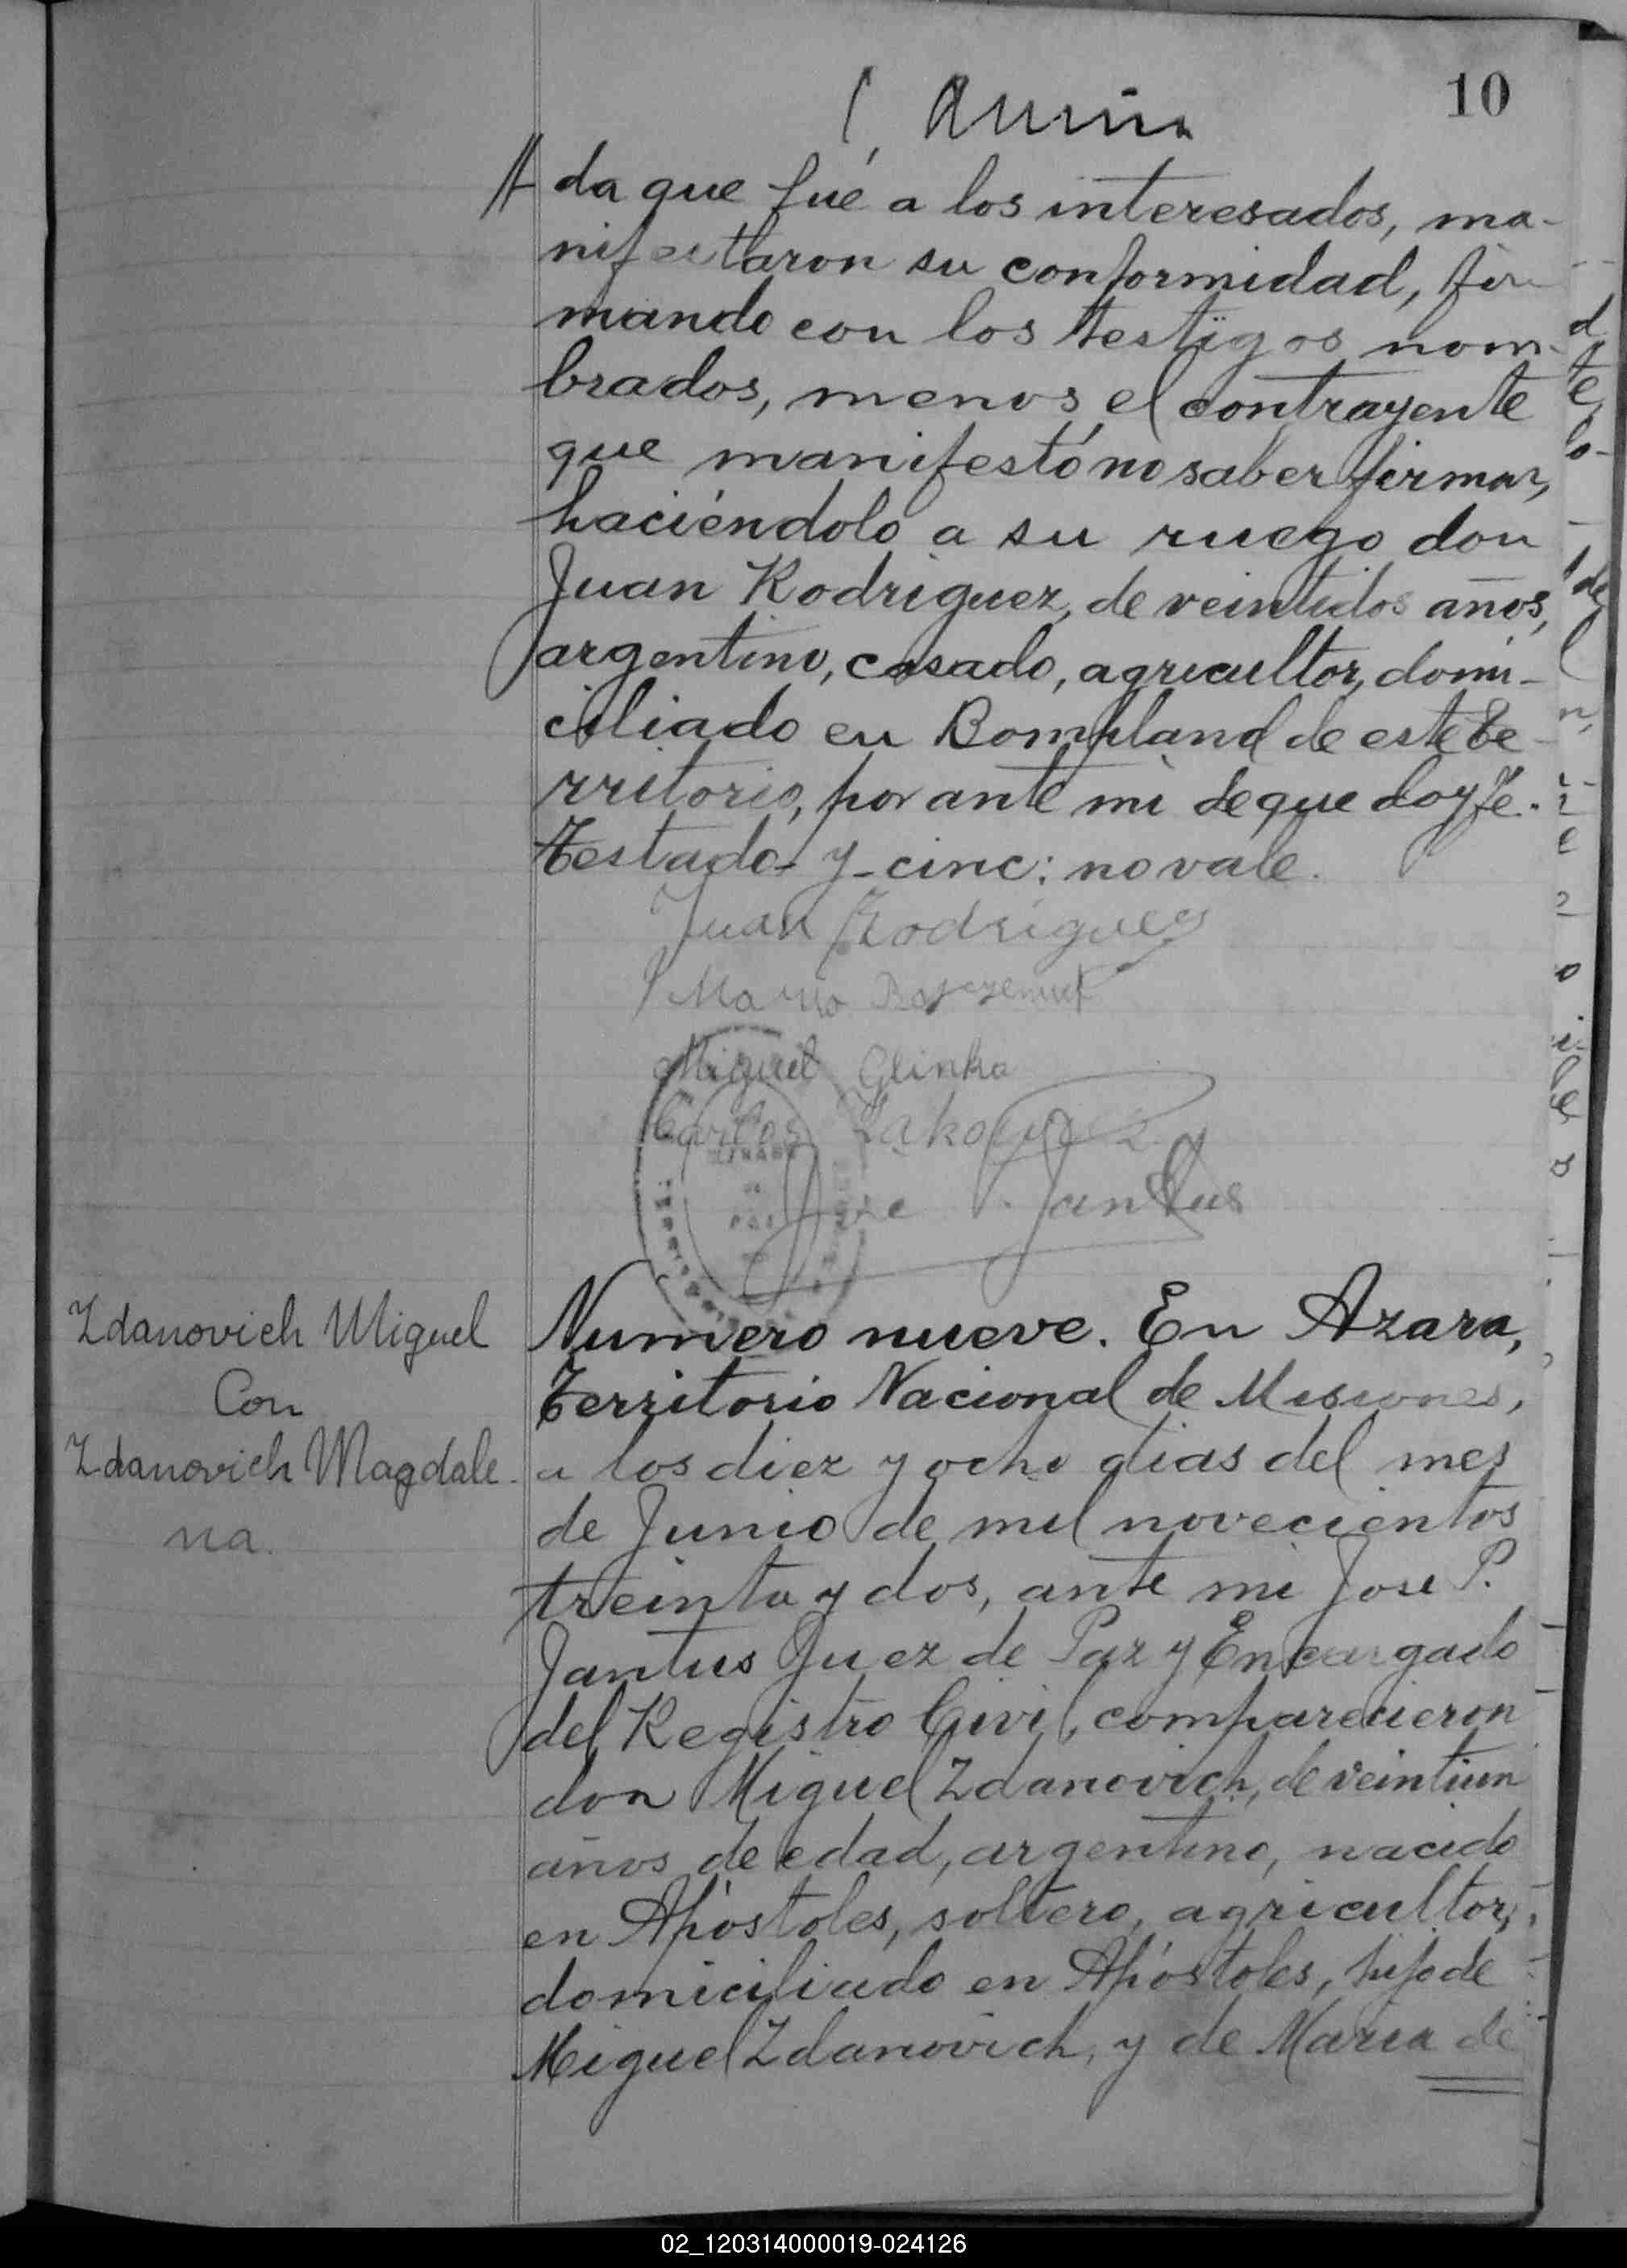 10
da que fué a los interesados, ma-
nifestaron su conformidad, fir-
mando con los testigos nom-
brados, menos el contrayente
que manifestó no saber firmar,
haciéndolo a su ruego don
Juan Rodriguez, de veintidos años,
argentino, casado, agricultor, domi-
ciliado en Bompland de este Te-
rritorio, por ante mi de que doy fe.
Testado- y- cinc: no vale.
Juan Rodrigues
Maria
Miguel Glinka
Carlos
Jose P. Jantus
Zdanovich Miguel
Con
Zdanovich Magdale-
na.
Numero nueve. En Azara,
Territorio Nacional de Misiones,
a los diez y ocho dias del mes
de Junio de mil novecientos
treinta y dos, ante mi Jose P.
Jantus Juez de Paz y Encargado
del Registro Civil, comparecieron
don Miguel Zdanovich, de veintiun
años de edad, argentino, nacido
en Apóstoles, soltero, agricultor,
domiciliado en Apóstoles, hijo de
Miguel Zdanovich, y de Maria de
02_120314000019-024126